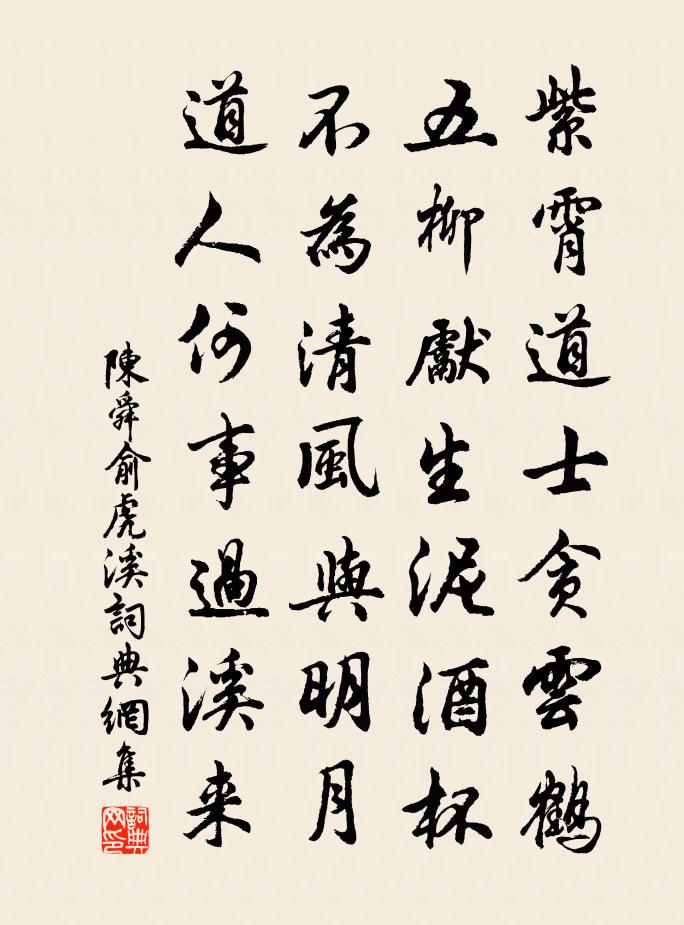 紫霄道士貪雲鶴
五柳獻生泥酒杯
不為清風與明月
道人何事過溪来
陳舜俞虎溪詞典網集
詞典网印